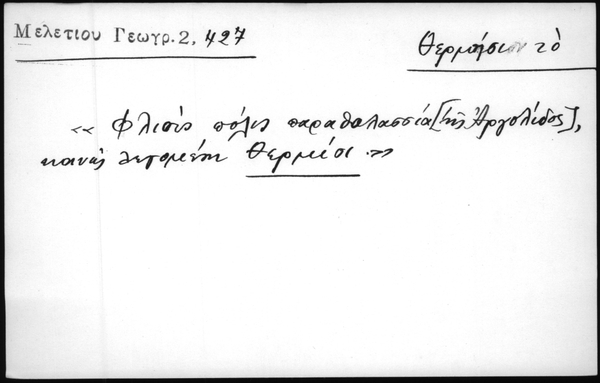 Μελετίου Γεωγρ. 2, 427
Θερμήσιον τὸ
« Φλιοῦς πόλις παραθαλασσία [τῆς Ἀργολίδος],
κοινῶς λεγομένη Θερμίσι »